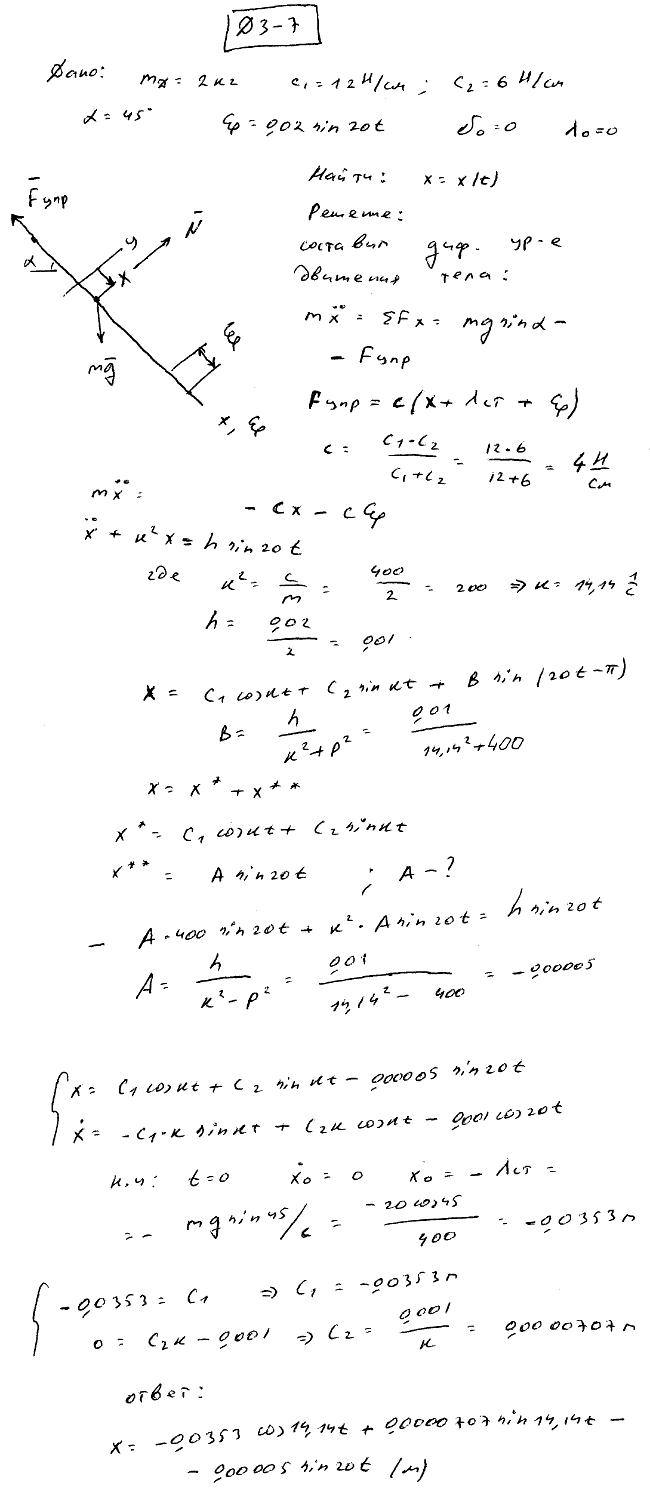 Д3-7
Дано: mД = 2кг c₁ = 12 Н/см ; c₂ = 6 Н/см
α = 45° ξ = 0,02 sin 20t υ₀ = 0 λ₀ = 0
Найти: x = x(t)
Решение:
составим диф. ур-е
движения тела:
mẍ = ΣFx = mg sinα -
- Fупр
F̄упр
y
N̄
α
x
mḡ
ξ
x, ξ
Fупр = c(x + λст + ξ)
c = c₁·c₂ / c₁+c₂ = 12·6 / 12+6 = 4 Н/см
mẍ = - cx - cξ
ẍ + к²x = h sin 20t
где к² = c/m = 400/2 = 200 ⇒ к = 14,14 1/с
h = 0,02/2 = 0,01.
x = C₁ cos кt + C₂ sin кt + B sin (20t - π)
B = h / к²+p² = 0,01 / 14,14²+400
x = x* + x**
x* = C₁ cos кt + C₂ sin кt
x** = A sin 20t ; A - ?
- A·400 sin 20t + к²·A sin 20t = h sin 20t
A = h / к²-p² = 0,01 / 14,14² - 400 = -0,00005
x = C₁ cos кt + C₂ sin кt - 0,00005 sin 20t
ẋ = -C₁·к sin кt + C₂к cos кt - 0,001 cos 20t
н.у: t=0 ẋ₀ = 0 x₀ = - λст =
= - mg sin 45/c = -20 cos 45 / 400 = -0,0353 м
-0,0353 = C₁ ⇒ C₁ = -0,0353 м
0 = C₂к - 0,001 ⇒ C₂ = 0,001/к = 0,0000707 м
ответ:
x = -0,0353 cos 14,14t + 0,0000707 sin 14,14t -
- 0,00005 sin 20t (м)